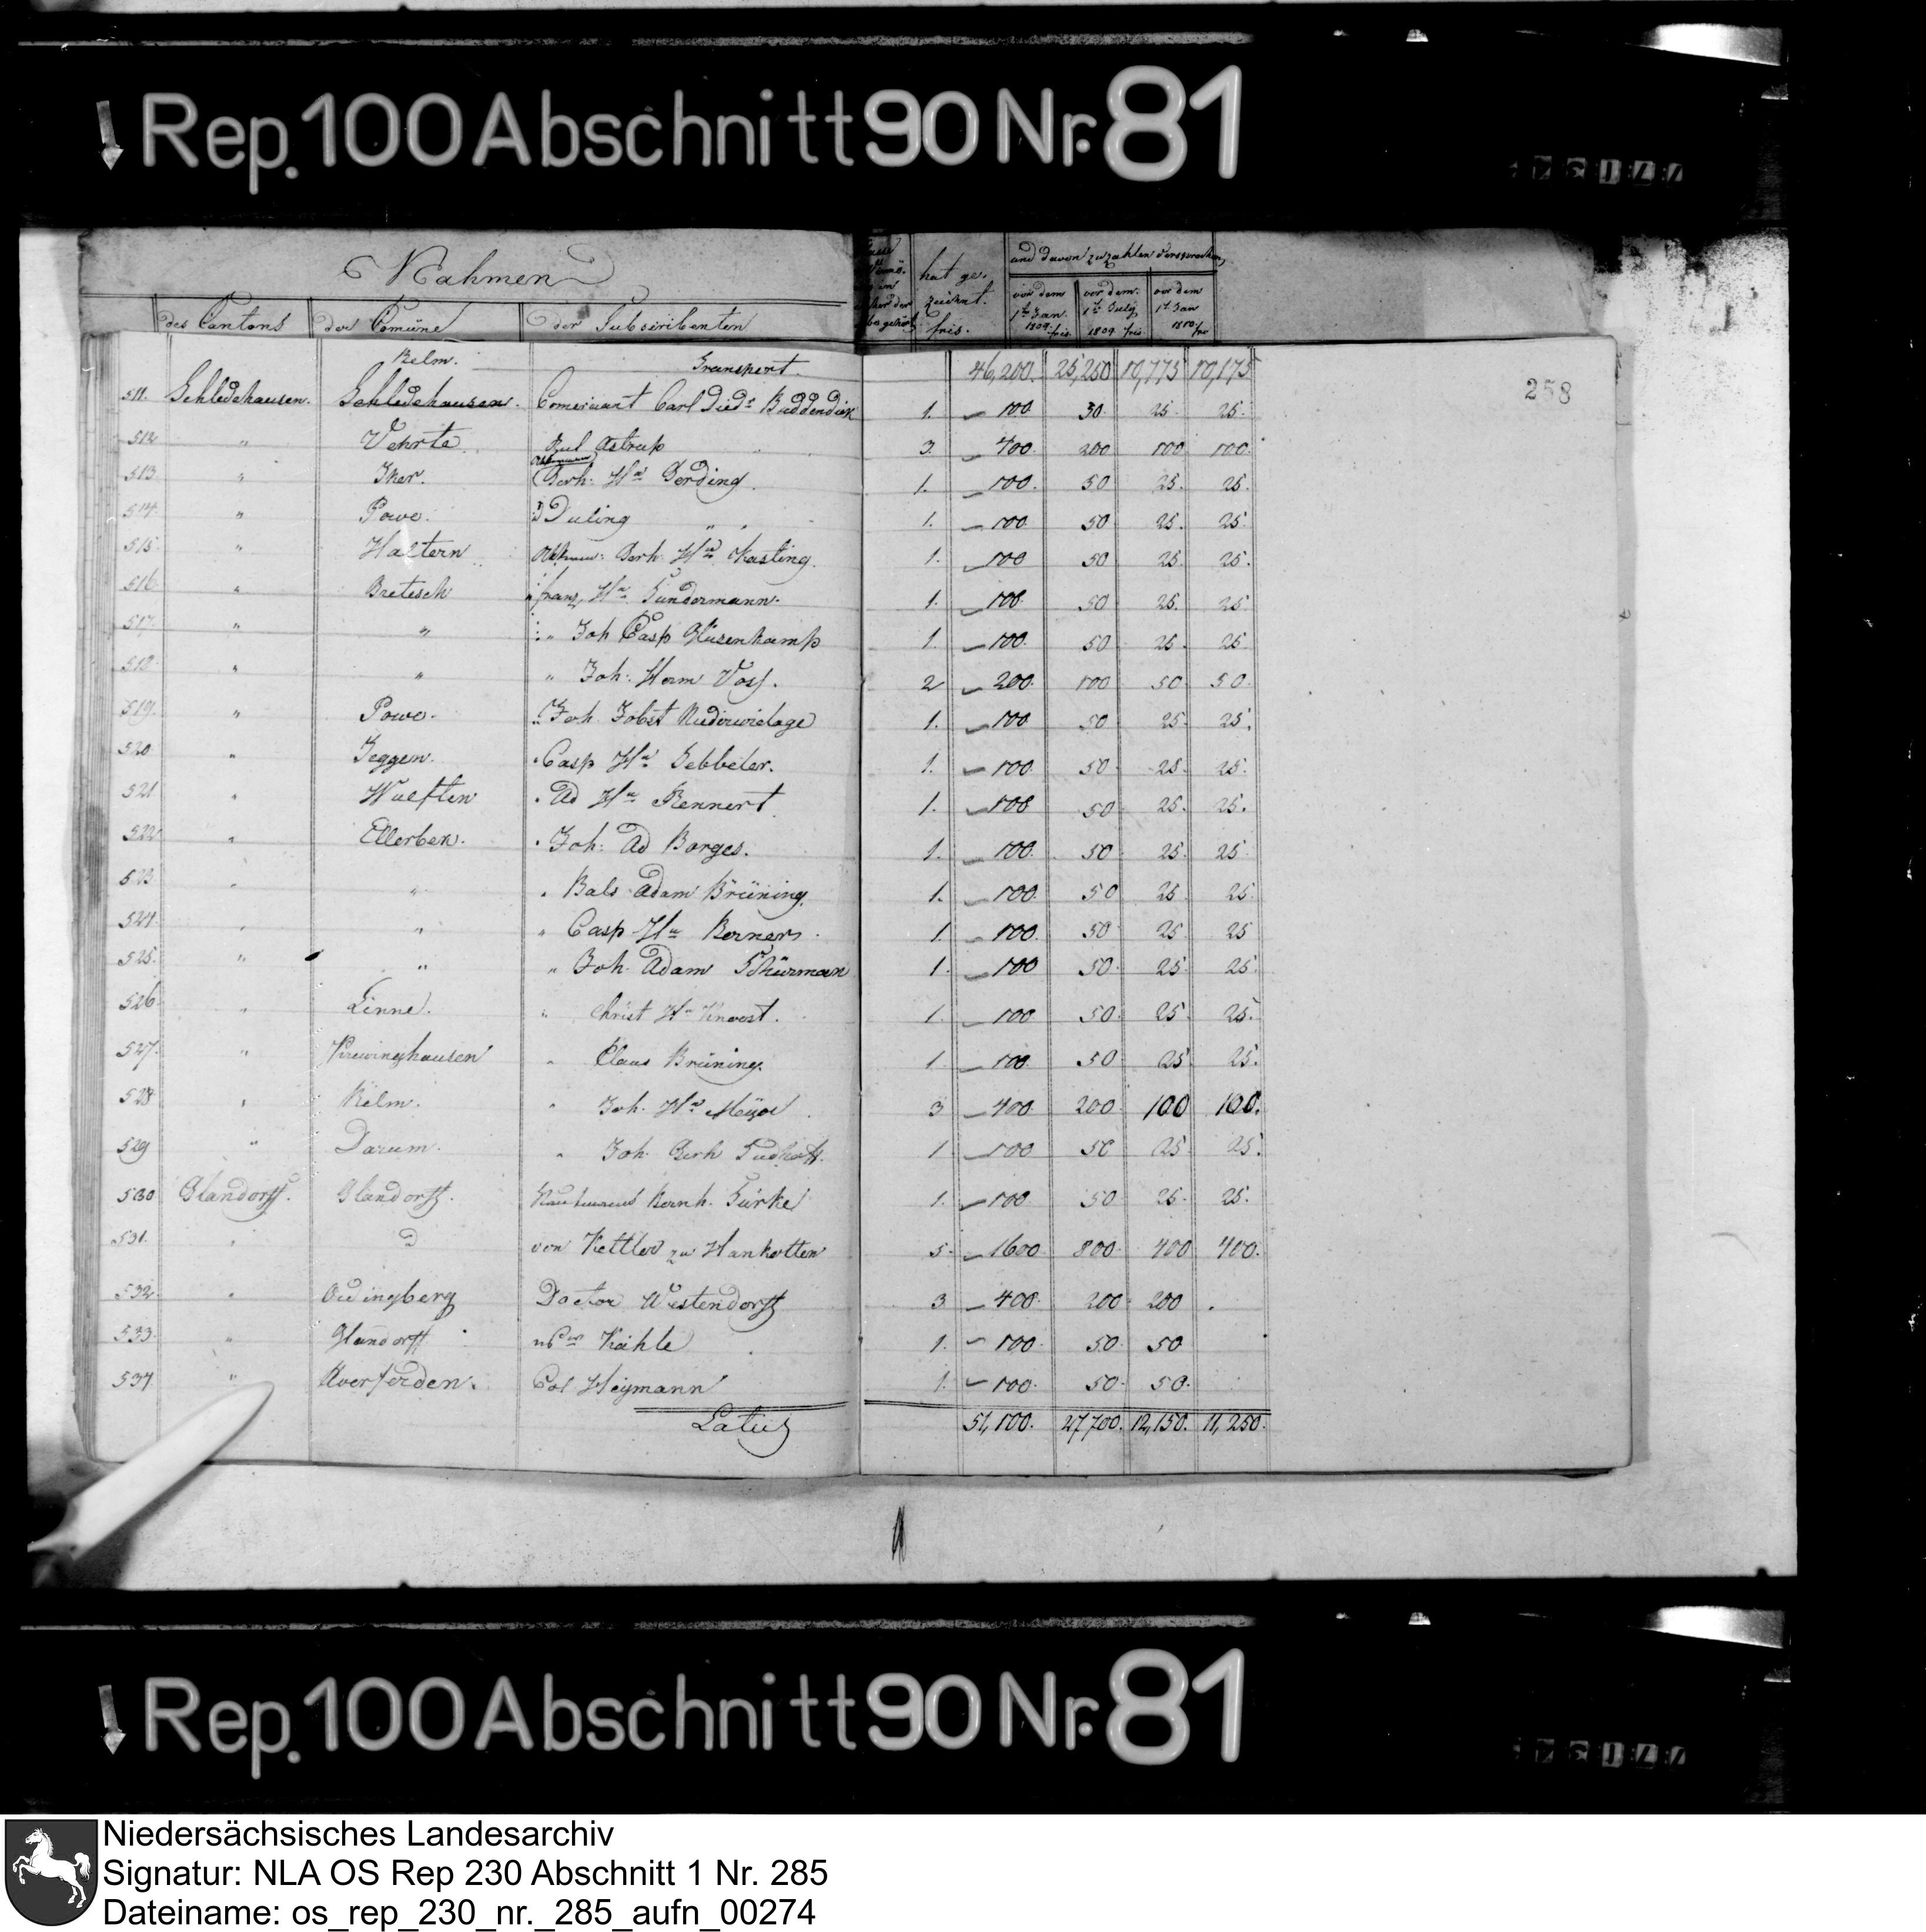 Rep. 100 Abschnitt 90 Nr. 81
Nahmen
hat ge-
zeichnet.
frcs.
und davon zu zahlen versprochen
vor dem 1ten Jan. 1809. frcs.
vor dem 1ten July 1809 frcs
vor dem 1t Jan 1810 frcs
des Cantons der Comüne der Subscribenten
258
Belm. Transport. 46,200. 25,250 10,775 10,175
511. Schledehausen. Schledehausen. Carl Died. Buddendiek 1. 100 50. 25. 25.
512 " Vehrte Astrup 3. 400. 200 100 100.
513 " Iker. Gerh: Hn Gerding. 1. 100. 50 25. 25.
514. " Powe. Duling " " 1. 100 50 25. 25.
515. " Haltern Gerh. Hn Kasting. 1. 100 50 25. 25.
516. " Bretisch franz Hn Sundermann. 1. 100. 50 25. 25
517. " " " Joh Casp Glüsenkamp 1. 100. 50 25. 25
518. " " " Joh: Herm Voss. 2 200. 100 50 50.
519. " Powe. Joh. Jobst Niederwielage 1. 100 50 25. 25.
520 " Jeggen. Casp Hn 1. 100. 50 25. 25.
521 " Wulften Ad Hn Rennert 1. 100 50 25. 25.
522 " Ellerbek. Joh: Ad Borges. 1. 100. 50 25. 25.
523 " " " Bals Adam Brüning. 1. 100. 50 25 25.
524. " " " Casp Hn 1. 100. 50. 25 25
525. " " " Joh. Adam Schürman 1. 100 50. 25. 25.
526. " Linne. " Christ Hn 1. 100 50. 25. 25.
527. " Krevinghausen " Claus Brüning. 1 100. 50 25. 25.
528 " Belm. " Joh. Hn Meÿer 3 400. 200 100 100.
529 " Darum. " Joh. Gerh Sudhoff. 1 100 50 25 25.
530 Glandorff. Glandorff. Bernh. Türke 1. 100 50 25. 25.
531. " D von Kettler zu Harkotten 5. 1600. 800. 400 400.
532. " Doctor Westendorff 3 400. 200 200
533. " Glandorff Kähle 1. 100. 50. 50
534 " Averferden. Col Heÿmann 1. 100. 50. 50.
Latus 51,100. 27,700. 12,150. 11,250.
Rep. 100 Abschnitt 90 Nr. 81
Niedersächsisches Landesarchiv
Signatur: NLA OS Rep 230 Abschnitt 1 Nr. 285
Dateiname: os_rep_230_nr._285_aufn_00274